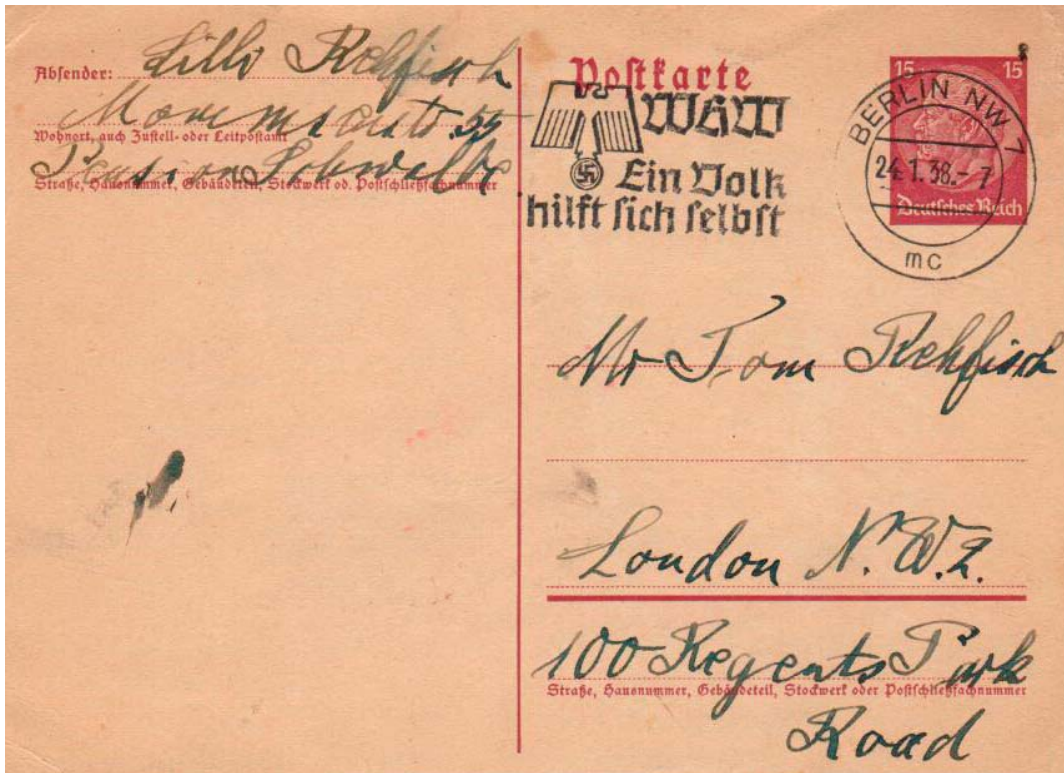 Absender: Lilli Rehfisch
Mommsenstr. 55
Wohnort, auch Zustell- oder Leitpostamt
Pension Schwalbe
Straße, Hausnummer, Gebäudeteil, Stockwerk od. Postschließfachnummer
Postkarte
WHW
Ein Volk
hilft sich selbst
15 15
BERLIN NW 7
24.1.38.- 7
mc
Deutsches Reich
Mr Tom Rehfisch
London N.W.1.
100 Regents Park
Straße, Hausnummer, Gebäudeteil, Stockwerk oder Postschließfachnummer
Road